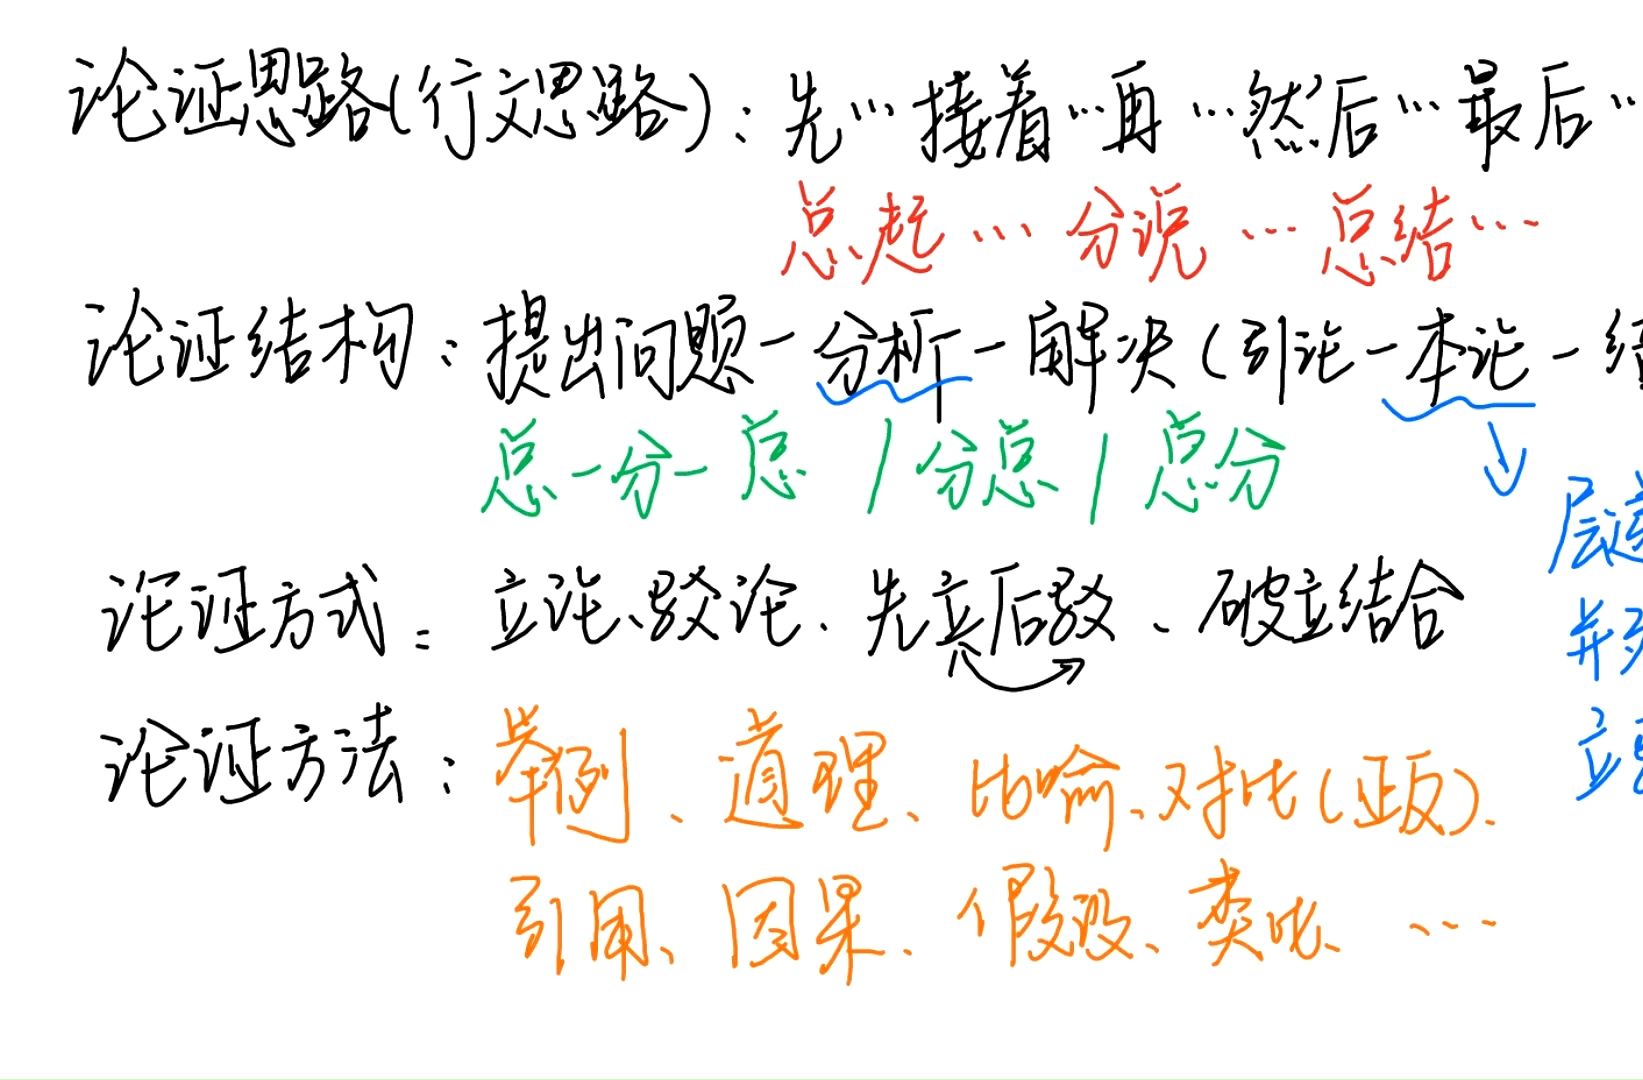 论证思路(行文思路)：先…接着…再…然后…最后…
总起…分说…总结…
论证结构：提出问题-分析-解决(引论-本论-结
总-分-总/分总/总分
层递
并列
论证方式：立论、驳论、先立后驳、破立结合
论证方法：举例、道理、比喻、对比(正反)、
引用、因果、假设、类比、…